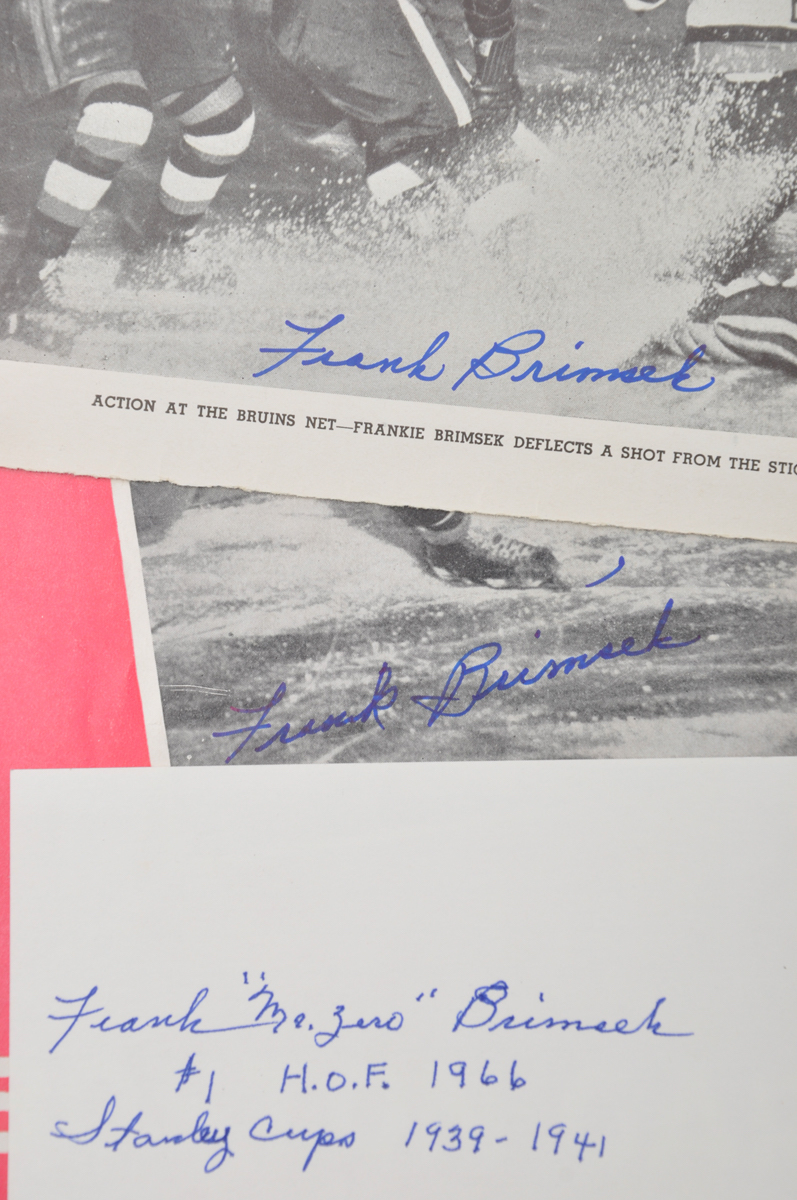 Frank Brimsek
ACTION AT THE BRUINS NET—FRANKIE BRIMSEK DEFLECTS A SHOT FROM THE
Frank Brimsek
Frank "Mr. Zero" Brimsek
#1 H.O.F. 1966
Stanley Cups 1939-1941